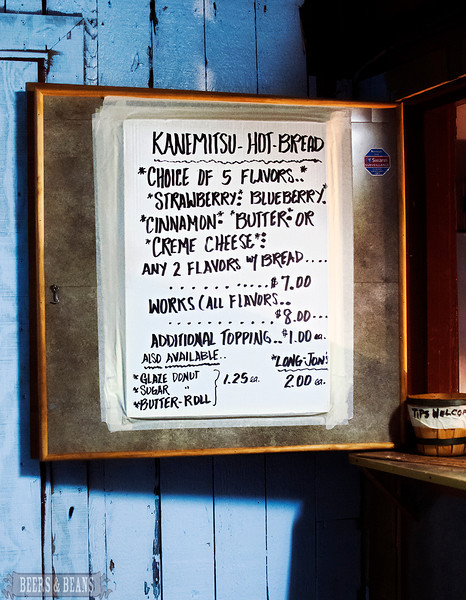 KANEMITSU-HOT-BREAD
*CHOICE OF 5 FLAVORS..
*STRAWBERRY* BLUEBERRY*
*CINNAMON* *BUTTER* OR
*CREME CHEESE*:
ANY 2 FLAVORS W/ BREAD....
......$7.00
WORKS (ALL FLAVORS..
..........$8.00...
ADDITIONAL TOPPING..$1.00 ea.
ALSO AVAILABLE.. *LONG-JON*
*GLAZE DONUT } 1.25 ea. 2.00 ea.
*SUGAR "
*BUTTER-ROLL
Swann
TIPS WELCOM
BEERS & BEANS